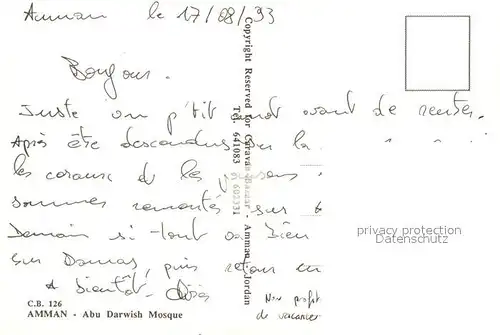 Amman le 17/08/93
Bonjour.
Juste un p'tit mot avant de rentrer.
Après être descendus sur la
les coraux et les poissons
sommes remontés sur
Demain si tout va bien
sur Damas, puis retour en
A bientôt
Non profit
de vacances
C.B. 126
AMMAN - Abu Darwish Mosque
Copyright Reserved for Caravan Bazaar - Amman, Jordan
Tel. 641083
privacy protection
Datenschutz